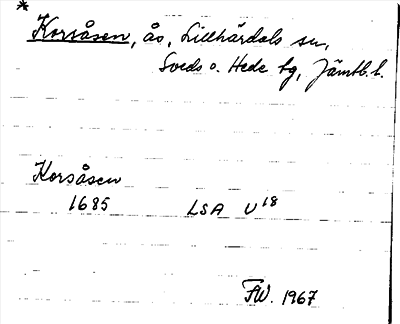 *
Korsåsen, ås, Lillhärdals sn,
Sveds o. Hede tg, Jämtl. l.
Korsåsen
1685 LSA U18
FW. 1967